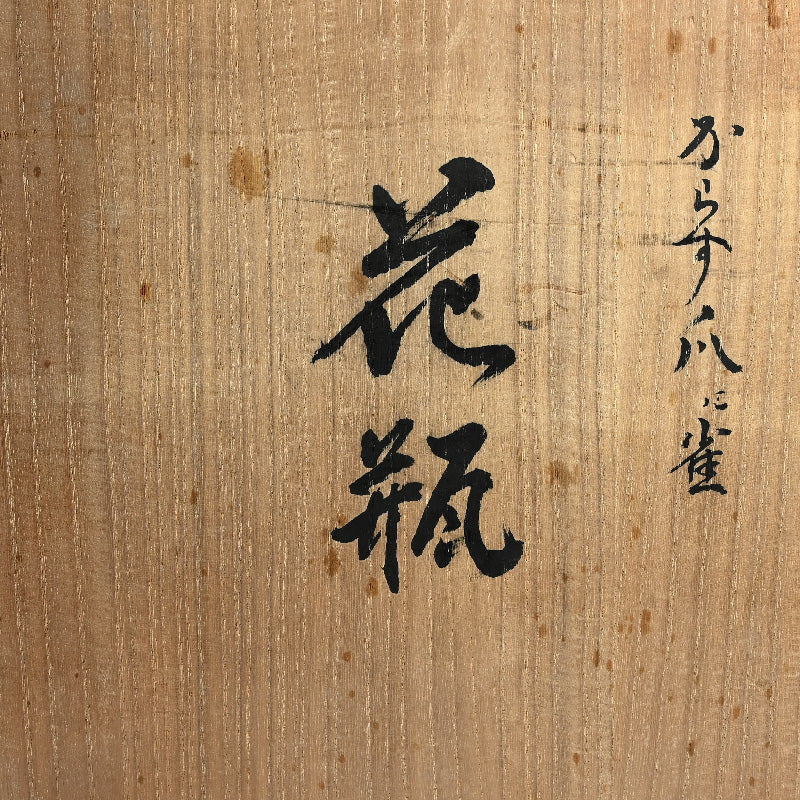 からす爪に雀
花瓶